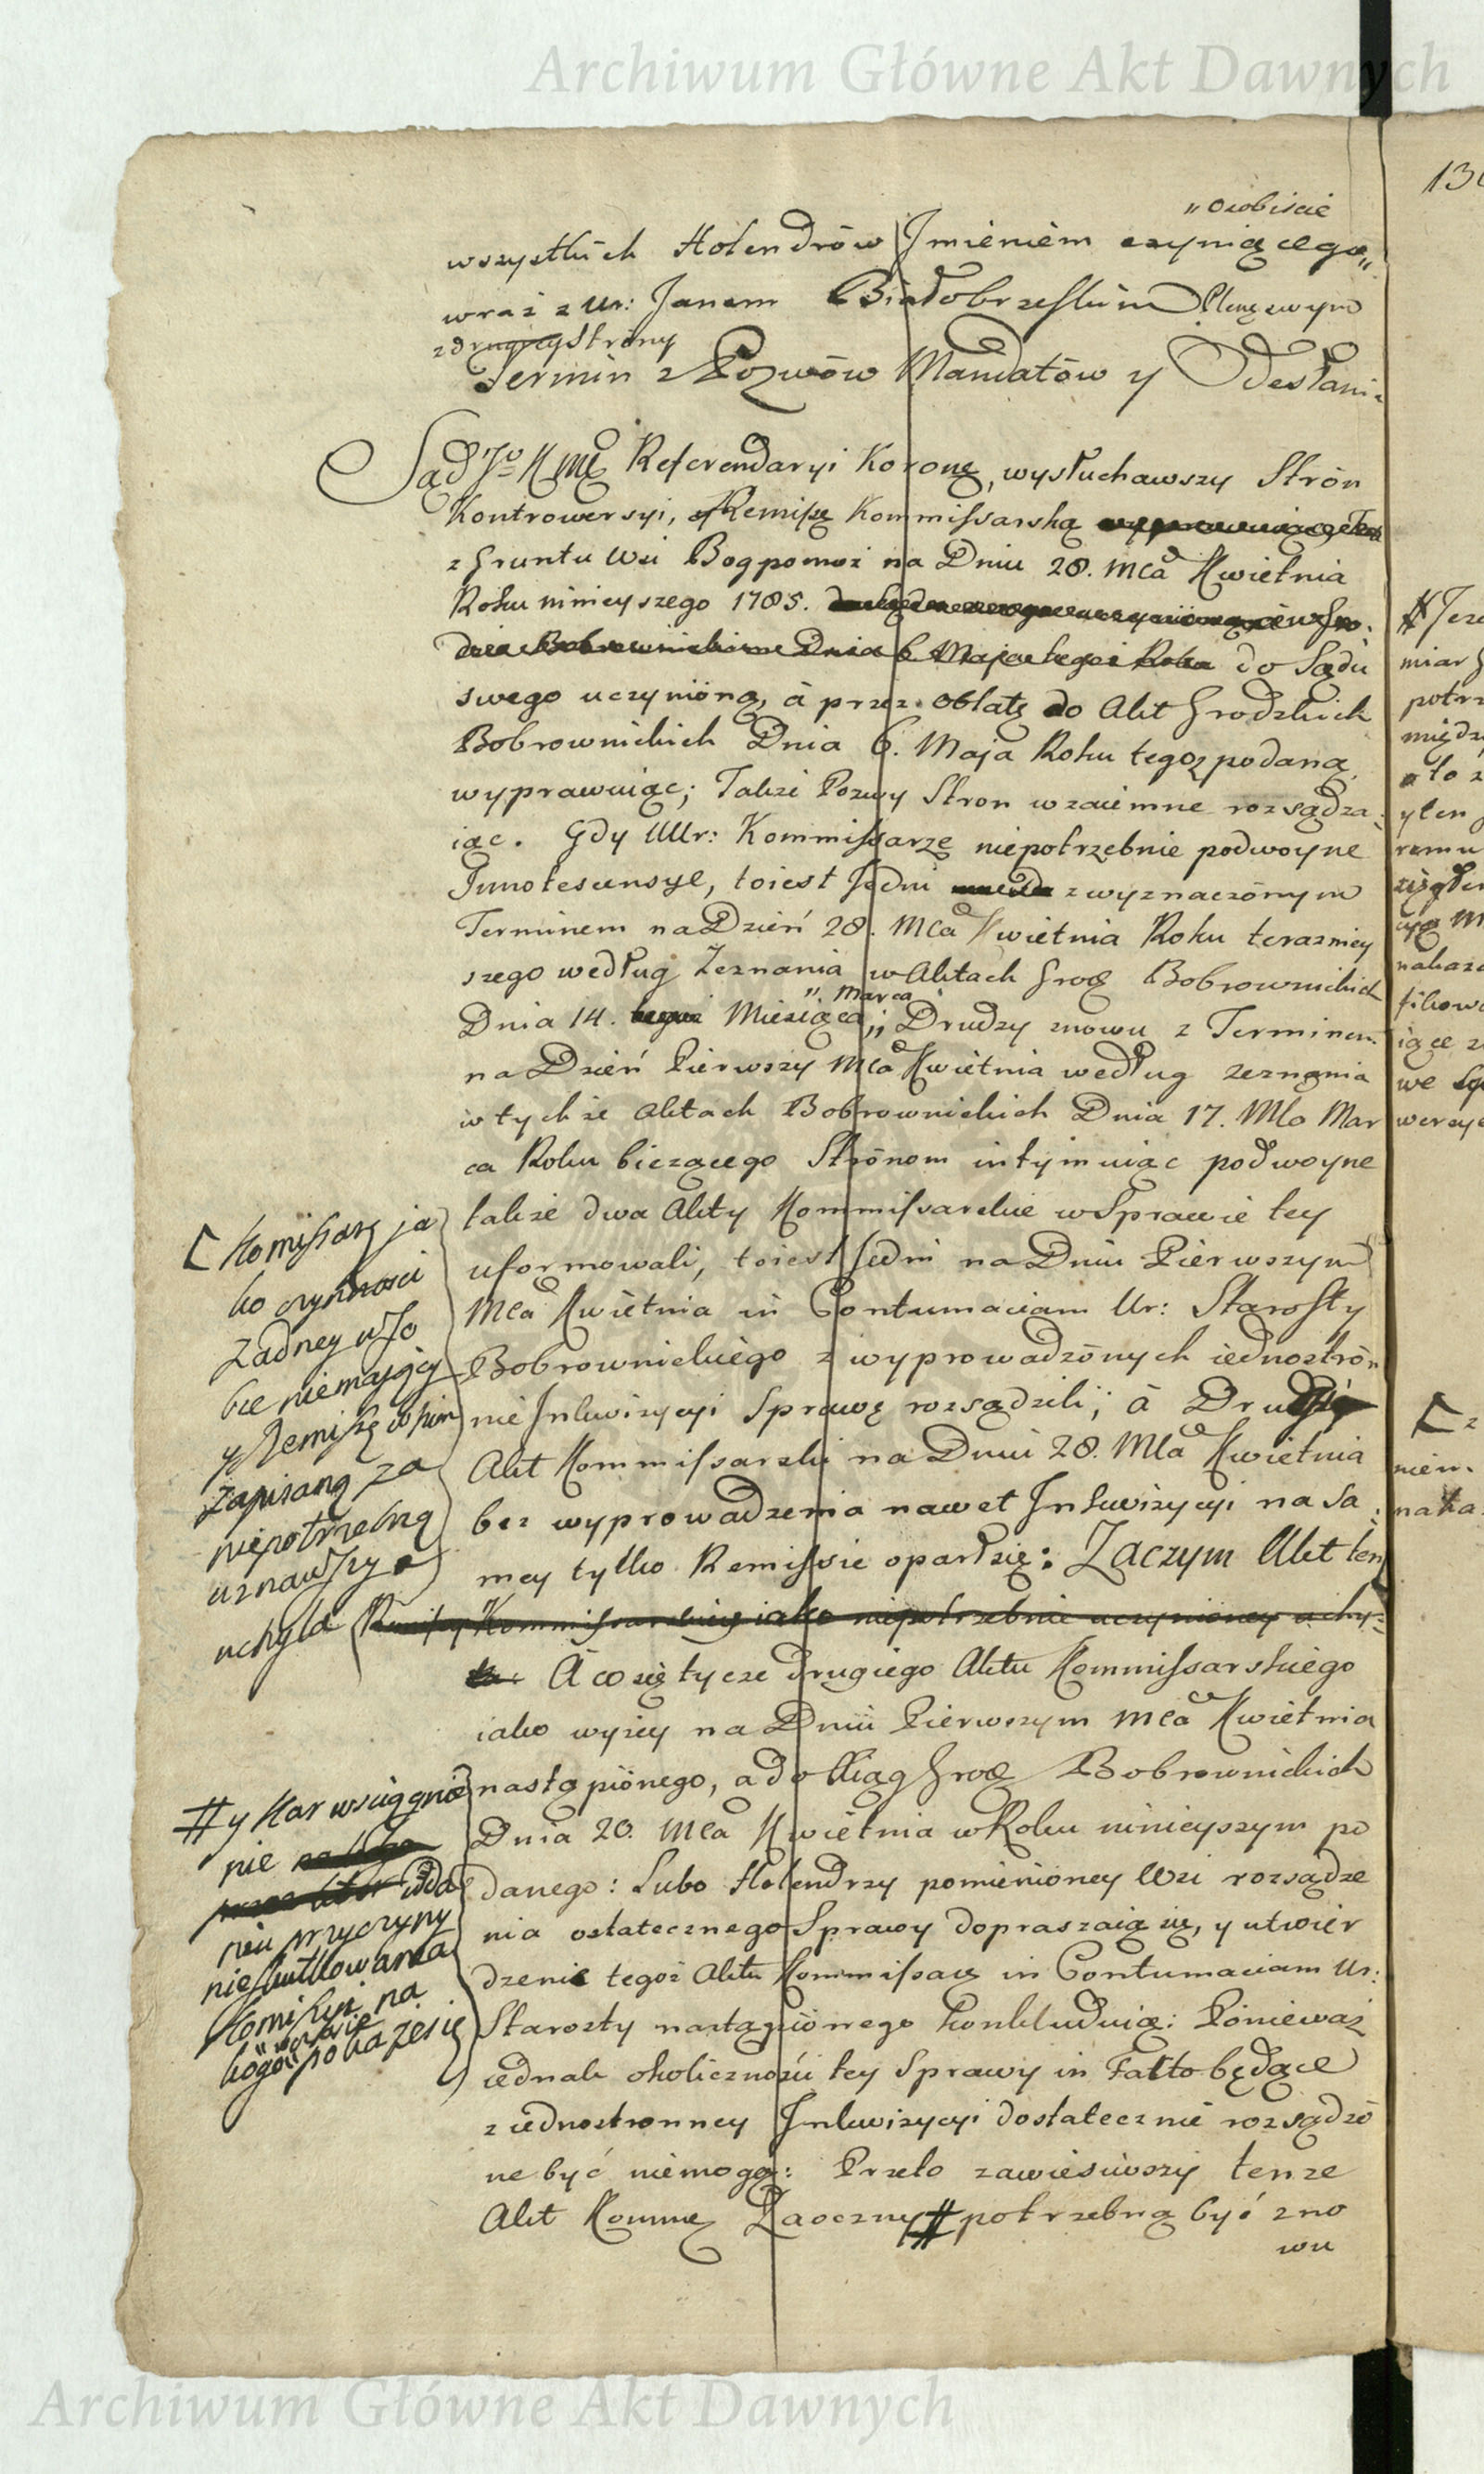 Archiwum Główne Akt Dawnych
„osobiscie
wszystkich Holendrów Jmieniem czyniącego„
wraz z Ur: Janem Białobrzeskim Plenę zwym
z drugiey Strony
Termin z Pozwów Mandatów y Odesłania
Sąd Jo K Mę Referendaryi Koronę, wysłuchawszy Strón
Kontrowersyi, Remissę Kommissarską
z Gruntu Wsi Bogpomoż na Dniu 28. Mca Kwietnia
Roku ninieyszego 1785.
Bobrownickim Dnia 6 Maja tegoż Roku do Sądu
swego uczynioną, à przez oblatę do Akt Grodzkich
Bobrownickich Dnia 6. Maja Roku tegoż podaną,
wyprawuiąc; Także Pozwy Stron wzaiemne rozsądza
iąc. Gdy UUr: Kommissarze niepotrzebnie podwoyne
Jnnotescensye, toiest Jedni z wyznaczonym
Terminem na Dzień 28. Mca Kwietnia Roku teraźniey
szego według Zeznania w Aktach Grodz Bobrownickich
„ Marca
Dnia 14. tegoż Miesiąca„ Drudzy znowu z Terminem
na Dzień Pierwszy Mca Kwietnia według zeznania
w tychże Aktach Bobrownickich Dnia 17. Mca Mar
ca Roku bieżącego Strónom intymuiąc podwoyne
także dwa Akty Kommissarskie w Sprawie tey
uformowali, toiest Jedni na Dniu Pierwszym
Mca Kwietnia in Contumaciam Ur: Starosty
Bobrownickiego z wyprowadzonych iednostrón
nie Jnkwizycyi Sprawę rozsądzili; à Drudzy
Akt Kommissarski na Dniu 28. Mca Kwietnia
bez wyprowadzenia nawet Jnkwizycyi na sa
mey tylko Remissie oparł się: Zaczym Akt ten
Remissy Kommissarskiey iako niepotrzebnie uczynioney uchy=
la. A co się tycze drugiego Aktu Kommissarskiego
iako wyżey na Dniu Pierwszym Mca Kwietnia
nastąpionego, a do Xiąg Grodz Bobrownickich
Dnia 20. Mca Kwietnia w Roku ninieyszym po
danego: Lubo Holendrzy pomienioney Wsi rozsądze
nia ostatecznego Sprawy dopraszaią się, y utwier
dzenie tegoż Aktu Kommissarz in Contumaciam Ur:
Starosty nastąpionego konkluduią: Pónieważ
iednak okoliczności tey Sprawy in Facto będące
z iednostronney Jnkwizycyi dostatecznie rozsądzo
ne być niemogą: Przeto zawiesiwszy tenże
Akt Kommę Zaoczny # potrzebną być zno
wu
[ Komissarz ja
ko czynności
żadney w So
bie niemaiący
y Remissę w nim
zapisaną za
niepotrzebną
uznawszy
uchyla
# y Kar wściągnie
nie
odda
niu przyczyny
nieskutkowania
Komissyi na
„ wczasie
kogo„ pokaże się
130
# Jeze
miar
potrz
międz
a to z
y ten
remu
nakaz
iące z
we
wersye
[ z
niem
naka
Archiwum Główne Akt Dawnych